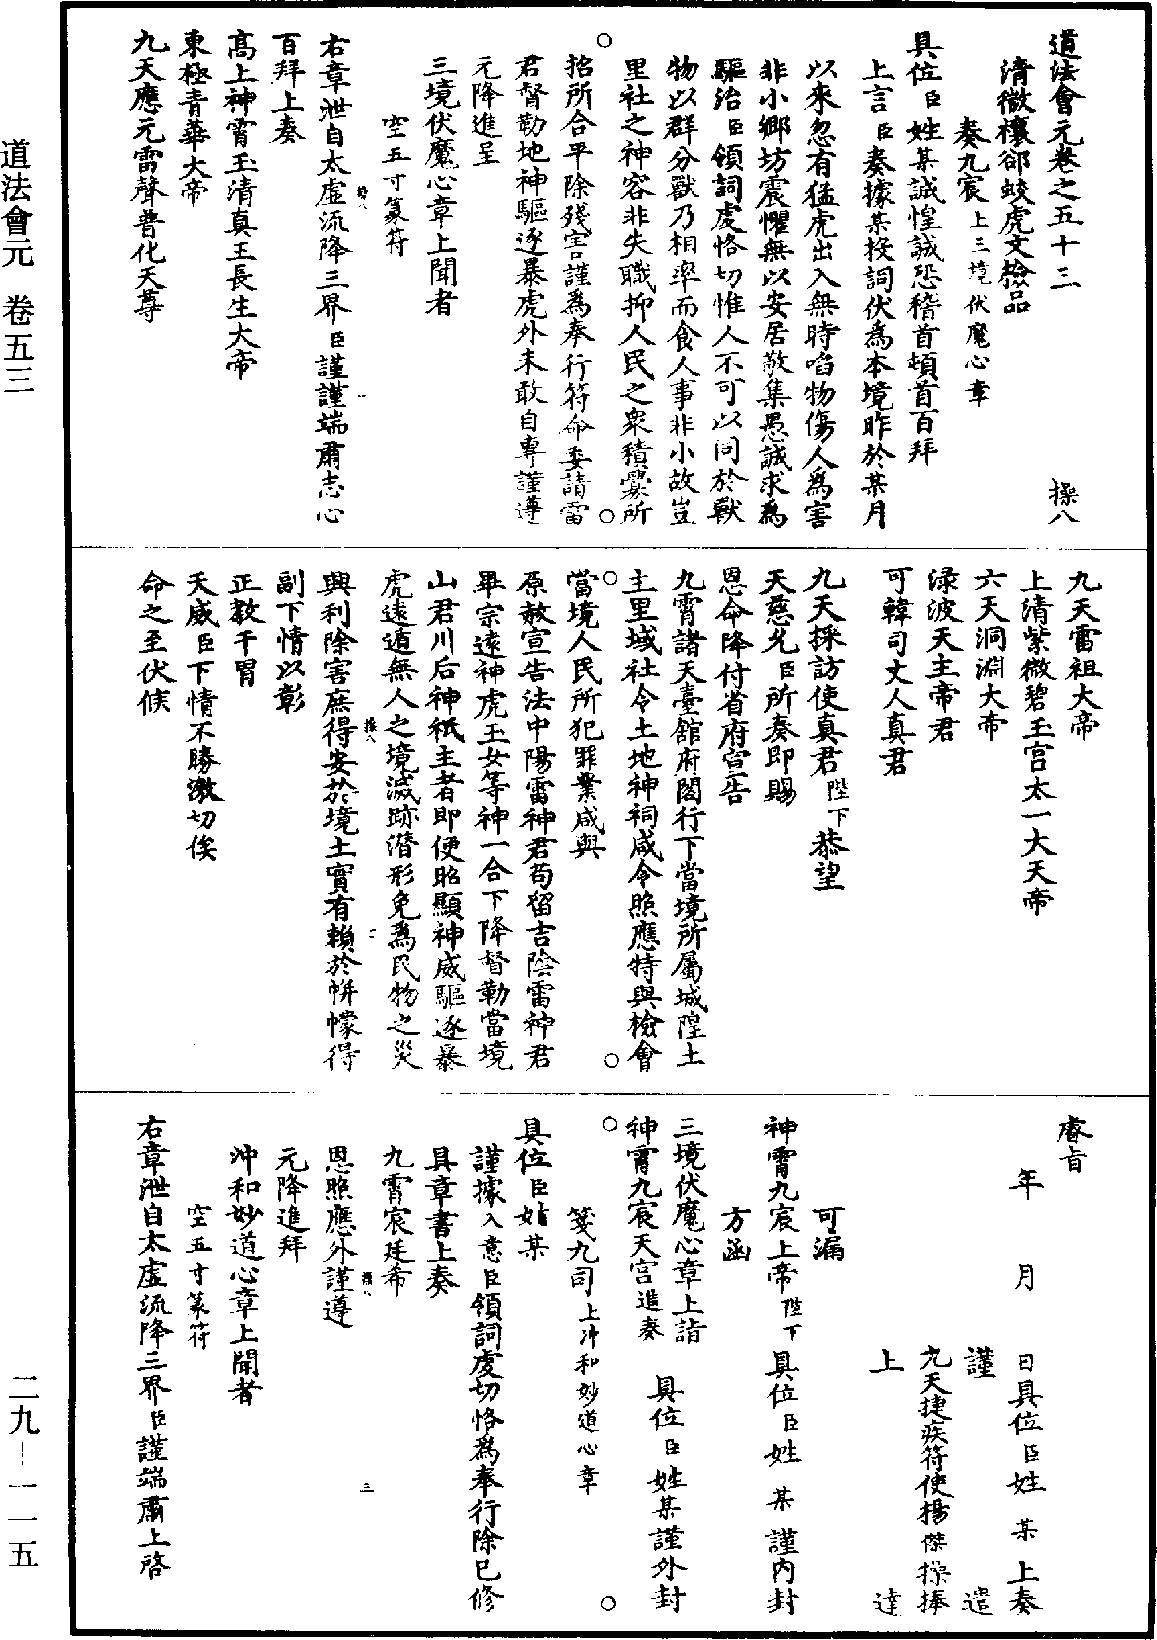 道法會元 卷五三
二九—一一五
道法會元卷之五十三 操八
清微禳郤蛟虎文檢品
奏九宸上三境伏魔心章
具位臣姓某誠惶誠恐稽首頓首百拜
上言臣奏據某投詞伏爲本境昨於某月
以來忽有猛虎出入無時啗物傷人爲害
非小鄉坊震懼無以安居敬集愚誠求爲
驅治臣領詞虔恪切惟人不可以同於獸
物以群分獸乃相率而食人事非小故豈
里社之神容非失職抑人民之衆積釁所
招所合平除殘害謹爲奉行符命委請雷
君督勒地神驅逐暴虎外未敢自專謹遵
元降進呈
三境伏魔心章上聞者
空五寸篆符
右章泄自太虛流降三界臣謹謹端肅志心
百拜上奏
高上神霄玉清真王長生大帝
東極青華大帝
九天應元雷聲普化天尊
九天雷祖大帝
上清紫微碧玉宮太一大天帝
六天洞淵大帝
渌波天主帝君
可韓司丈人真君
九天採訪使真君陛下恭望
天慈允臣所奏即賜
恩命降付省府宣告
九霄諸天臺館府閣行下當境所屬城隍土
主里域社令土地神祠咸令照應特與檢會
當境人民所犯罪業咸與
原赦宣告法中陽雷神君苟留吉陰雷神君
畢宗遠神虎玉女等神一合下降督勒當境
山君川后神祇主者即便昭顯神威驅逐暴
虎遠遁無人之境滅跡潛形免爲民物之災
興利除害庶得安於境土實有賴於帡幪得
副下情以彰
正教干冒
天威臣下情不勝激切俟
命之至伏候
睿旨
年 月 日具位臣姓 某 上奏
謹 遣
九天捷疾符使楊傑操捧
上 達
可漏
神霄九宸上帝陛下 具位臣姓 某 謹內封
方函
三境伏魔心章上詣
神霄九宸天宮進奏 具位臣姓某謹外封
箋九司上冲和妙道心章
具位臣姓某
謹據入意臣領詞虔切恪爲奉行除已修
具章書上奏
九霄宸廷希
恩照應外謹遵
元降進拜
冲和妙道心章上聞者
空五寸篆符
右章泄自太虛流降三界臣謹端肅上啓